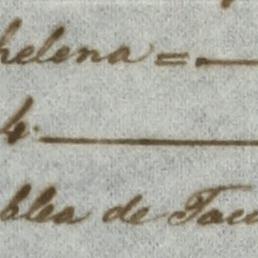 helena =.
4.
blea de Taca